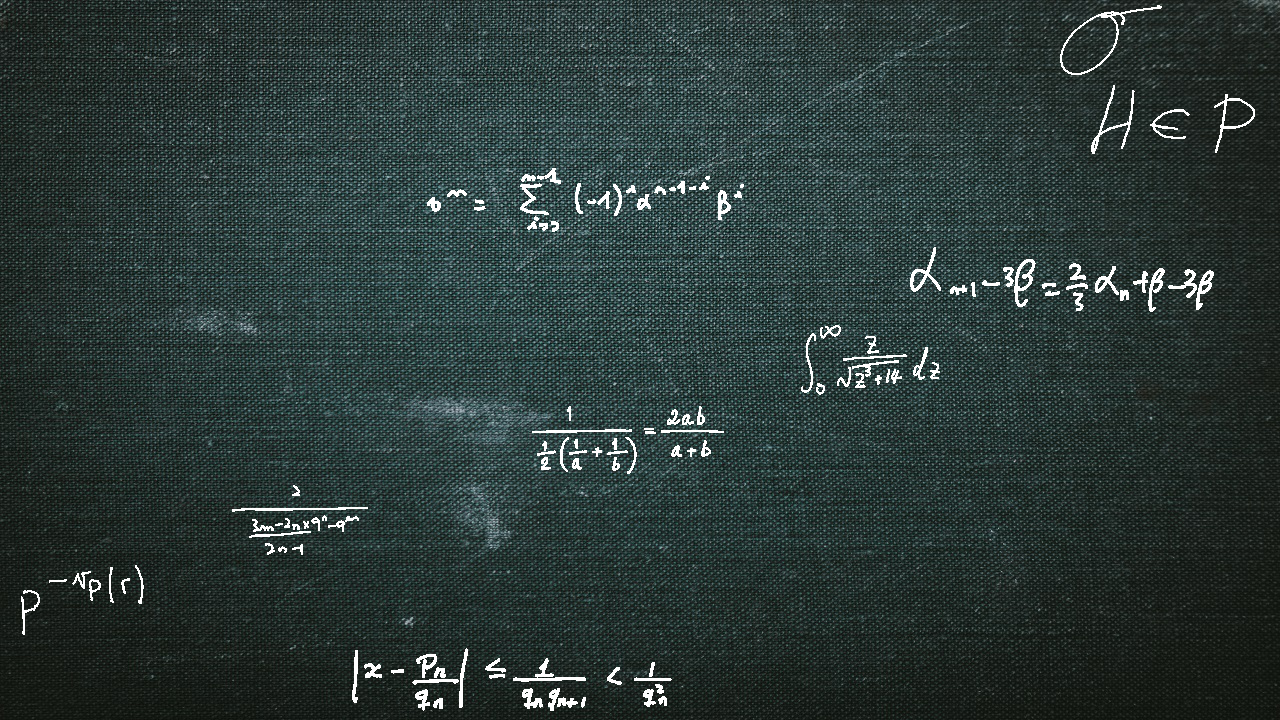 σ
H ∈ P
v^n = \sum_{i=0}^{n-1} (-1)^i α^{n-1-i} β^i
α_{n+1} - 3β = \frac{2}{3} α_n + β - 3β
\int_0^∞ \frac{z}{\sqrt{z^3+14}} dz
\frac{1}{\frac{1}{2}(\frac{1}{a} + \frac{1}{b})} = \frac{2ab}{a+b}
\frac{2}{\frac{3m-2n×9^n-9^m}{2n-1}}
p^{-v_p(r)}
|x - \frac{p_n}{q_n}| ≤ \frac{1}{q_n q_{n+1}} < \frac{1}{q_n^2}